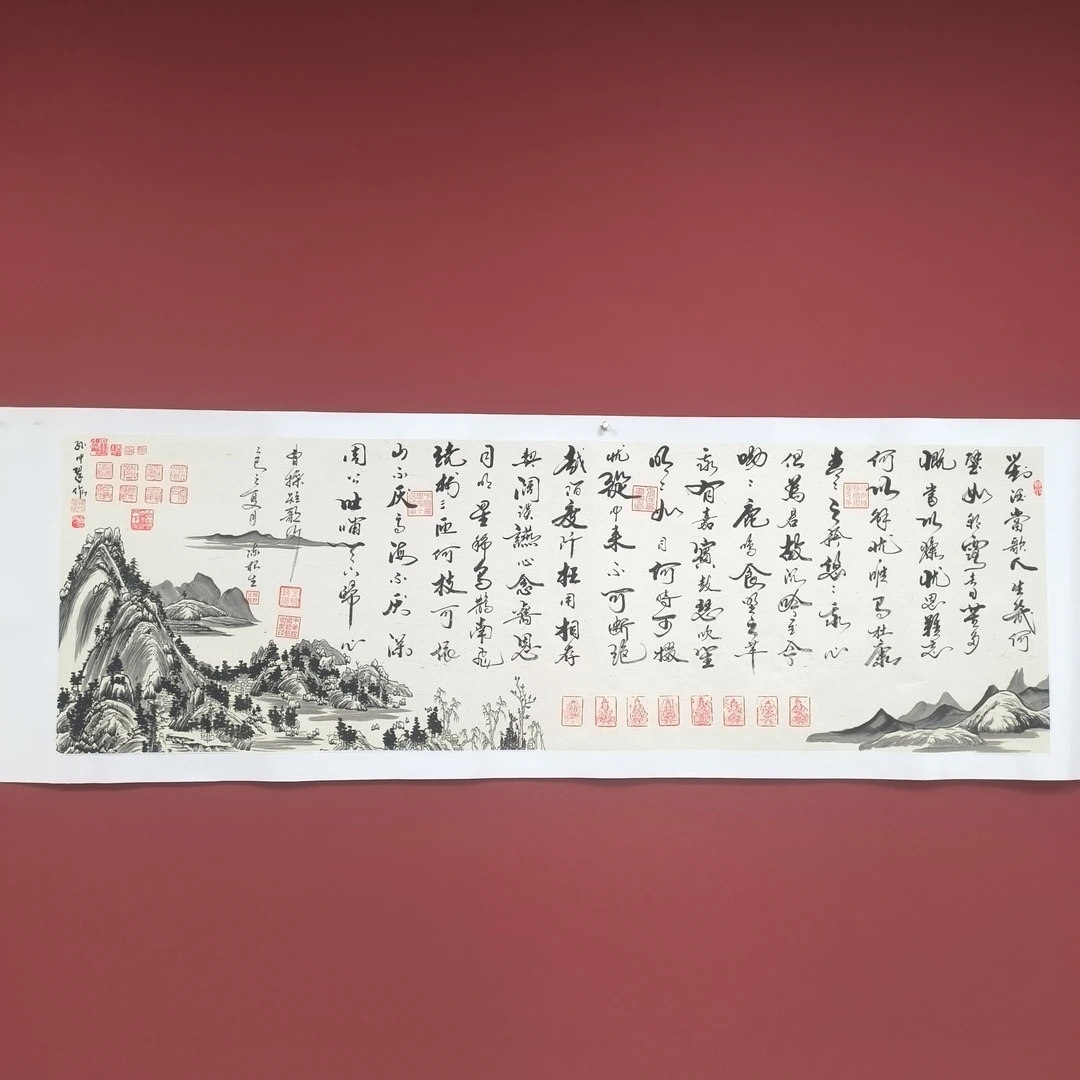 對酒當歌人生幾何
譬如朝露去日苦多
慨當以慷忧思難忘
何以解忧唯有杜康
青々子衿悠々我心
但為君故沉吟至今
呦々鹿鳴食野之苹
我有嘉賓鼓瑟吹笙
明々如月何時可掇
忧從中来不可斷絕
越陌度阡枉用相存
契闊談讌心念舊恩
月明星稀烏鵲南飛
繞樹三匝何枝可依
山不厌高海不厌深
周公吐哺天下歸心
曹操短歌行
乙巳之夏月